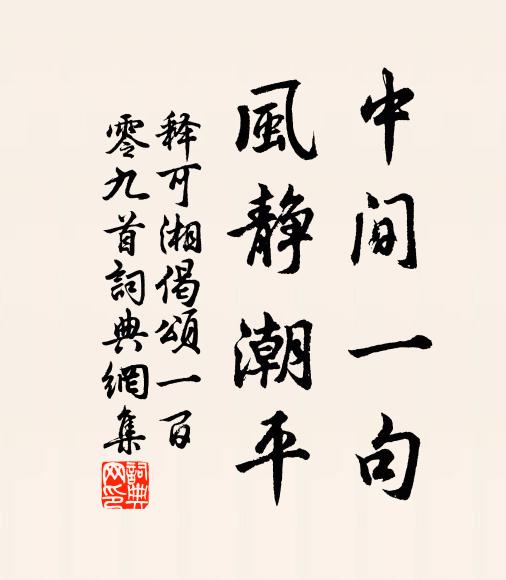 中间一句
風静潮平
释可湘偈頌一百
零九首詞典網集
詞典
网印